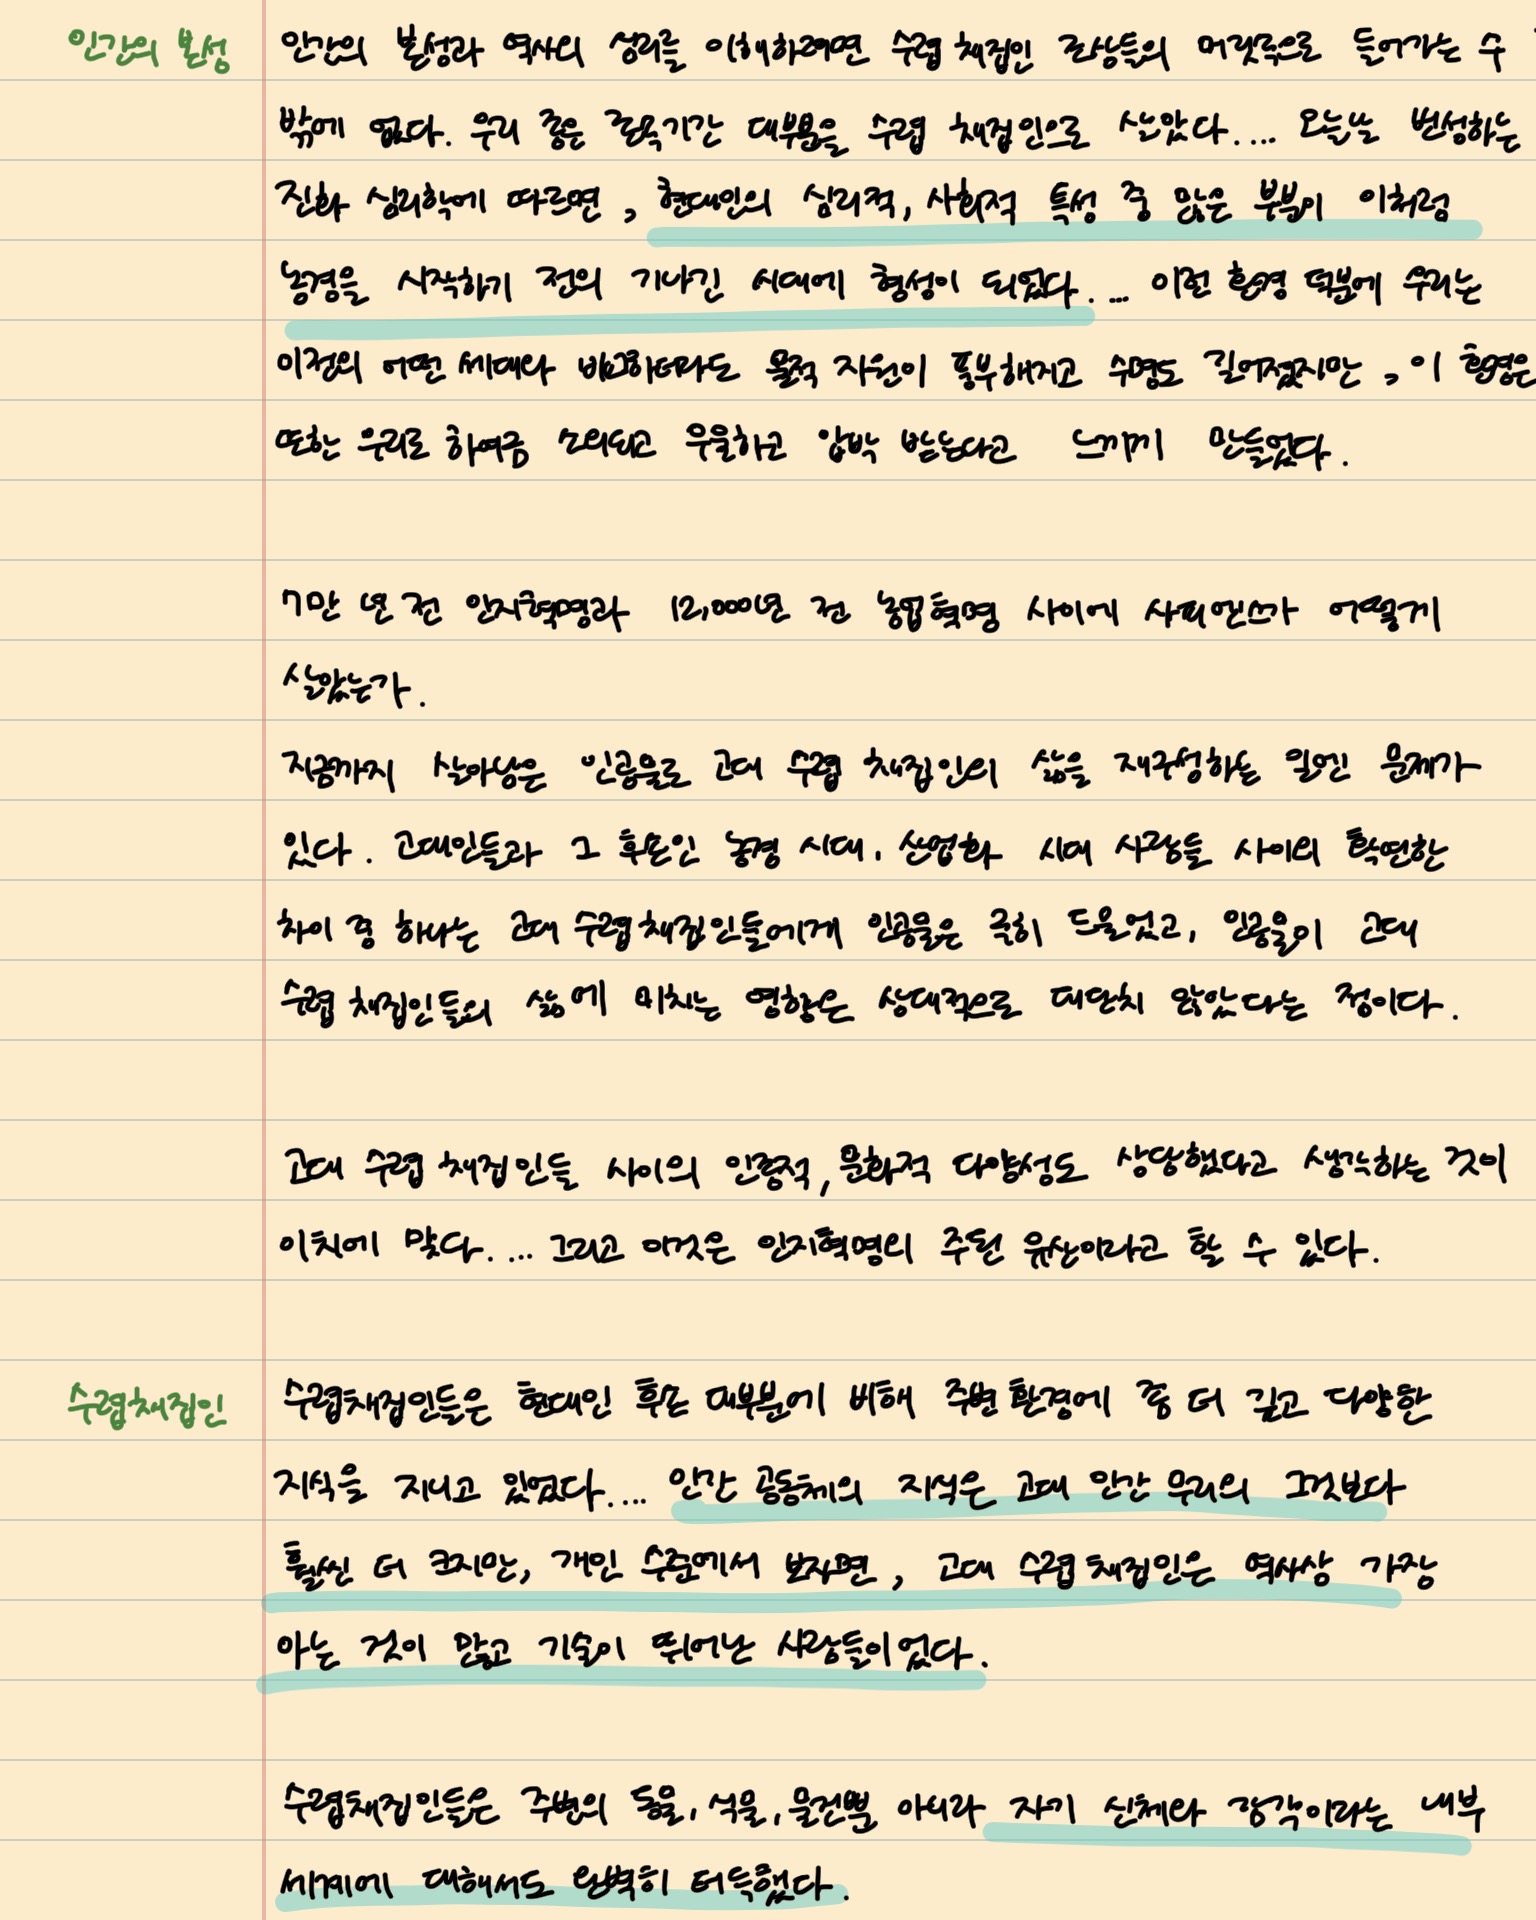 인간의 본성
인간의 본성과 역사의 심리를 이해하려면 수렵 채집인 조상들의 머릿속으로 들어가는 수
밖에 없다. 우리 종은 존속기간 대부분을 수렵 채집인으로 살았다.... 오늘날 번성하는
진화 심리학에 따르면, 현대인의 심리적, 사회적 특성 중 많은 부분이 이처럼
농경을 시작하기 전의 기나긴 시대에 형성이 되었다.... 이런 환경 덕분에 우리는
이전의 어떤 세대와 비교하더라도 물적 자원이 풍부해지고 수명도 길어졌지만, 이 환경은
또한 우리로 하여금 소외되고 우울하고 압박 받는다고 느끼게 만들었다.
7만 년 전 인지혁명과 12,000년 전 농업혁명 사이에 사피엔스가 어떻게
살았는가.
지금까지 살아남은 인공물로 고대 수렵 채집인의 삶을 재구성하는 일엔 문제가
있다. 고대인들과 그 후손인 농경 시대, 산업화 시대 사람들 사이의 확연한
차이 중 하나는 고대 수렵채집인들에게 인공물은 극히 드물었고, 인공물이 고대
수렵 채집인들의 삶에 미치는 영향은 상대적으로 대단치 않았다는 점이다.
고대 수렵 채집인들 사이의 인종적, 문화적 다양성도 상당했다고 생각하는 것이
이치에 맞다.... 그리고 이것은 인지혁명의 주된 유산이라고 할 수 있다.
수렵채집인
수렵채집인들은 현대인 후손 대부분에 비해 주변 환경에 좀 더 깊고 다양한
지식을 지니고 있었다.... 인간 공동체의 지식은 고대 인간 무리의 그것보다
훨씬 더 크지만, 개인 수준에서 보자면, 고대 수렵 채집인은 역사상 가장
아는 것이 많고 기술이 뛰어난 사람들이었다.
수렵채집인들은 주변의 동물, 식물, 물건뿐 아니라 자기 신체와 감각이라는 내부
세계에 대해서도 완벽히 터득했다.